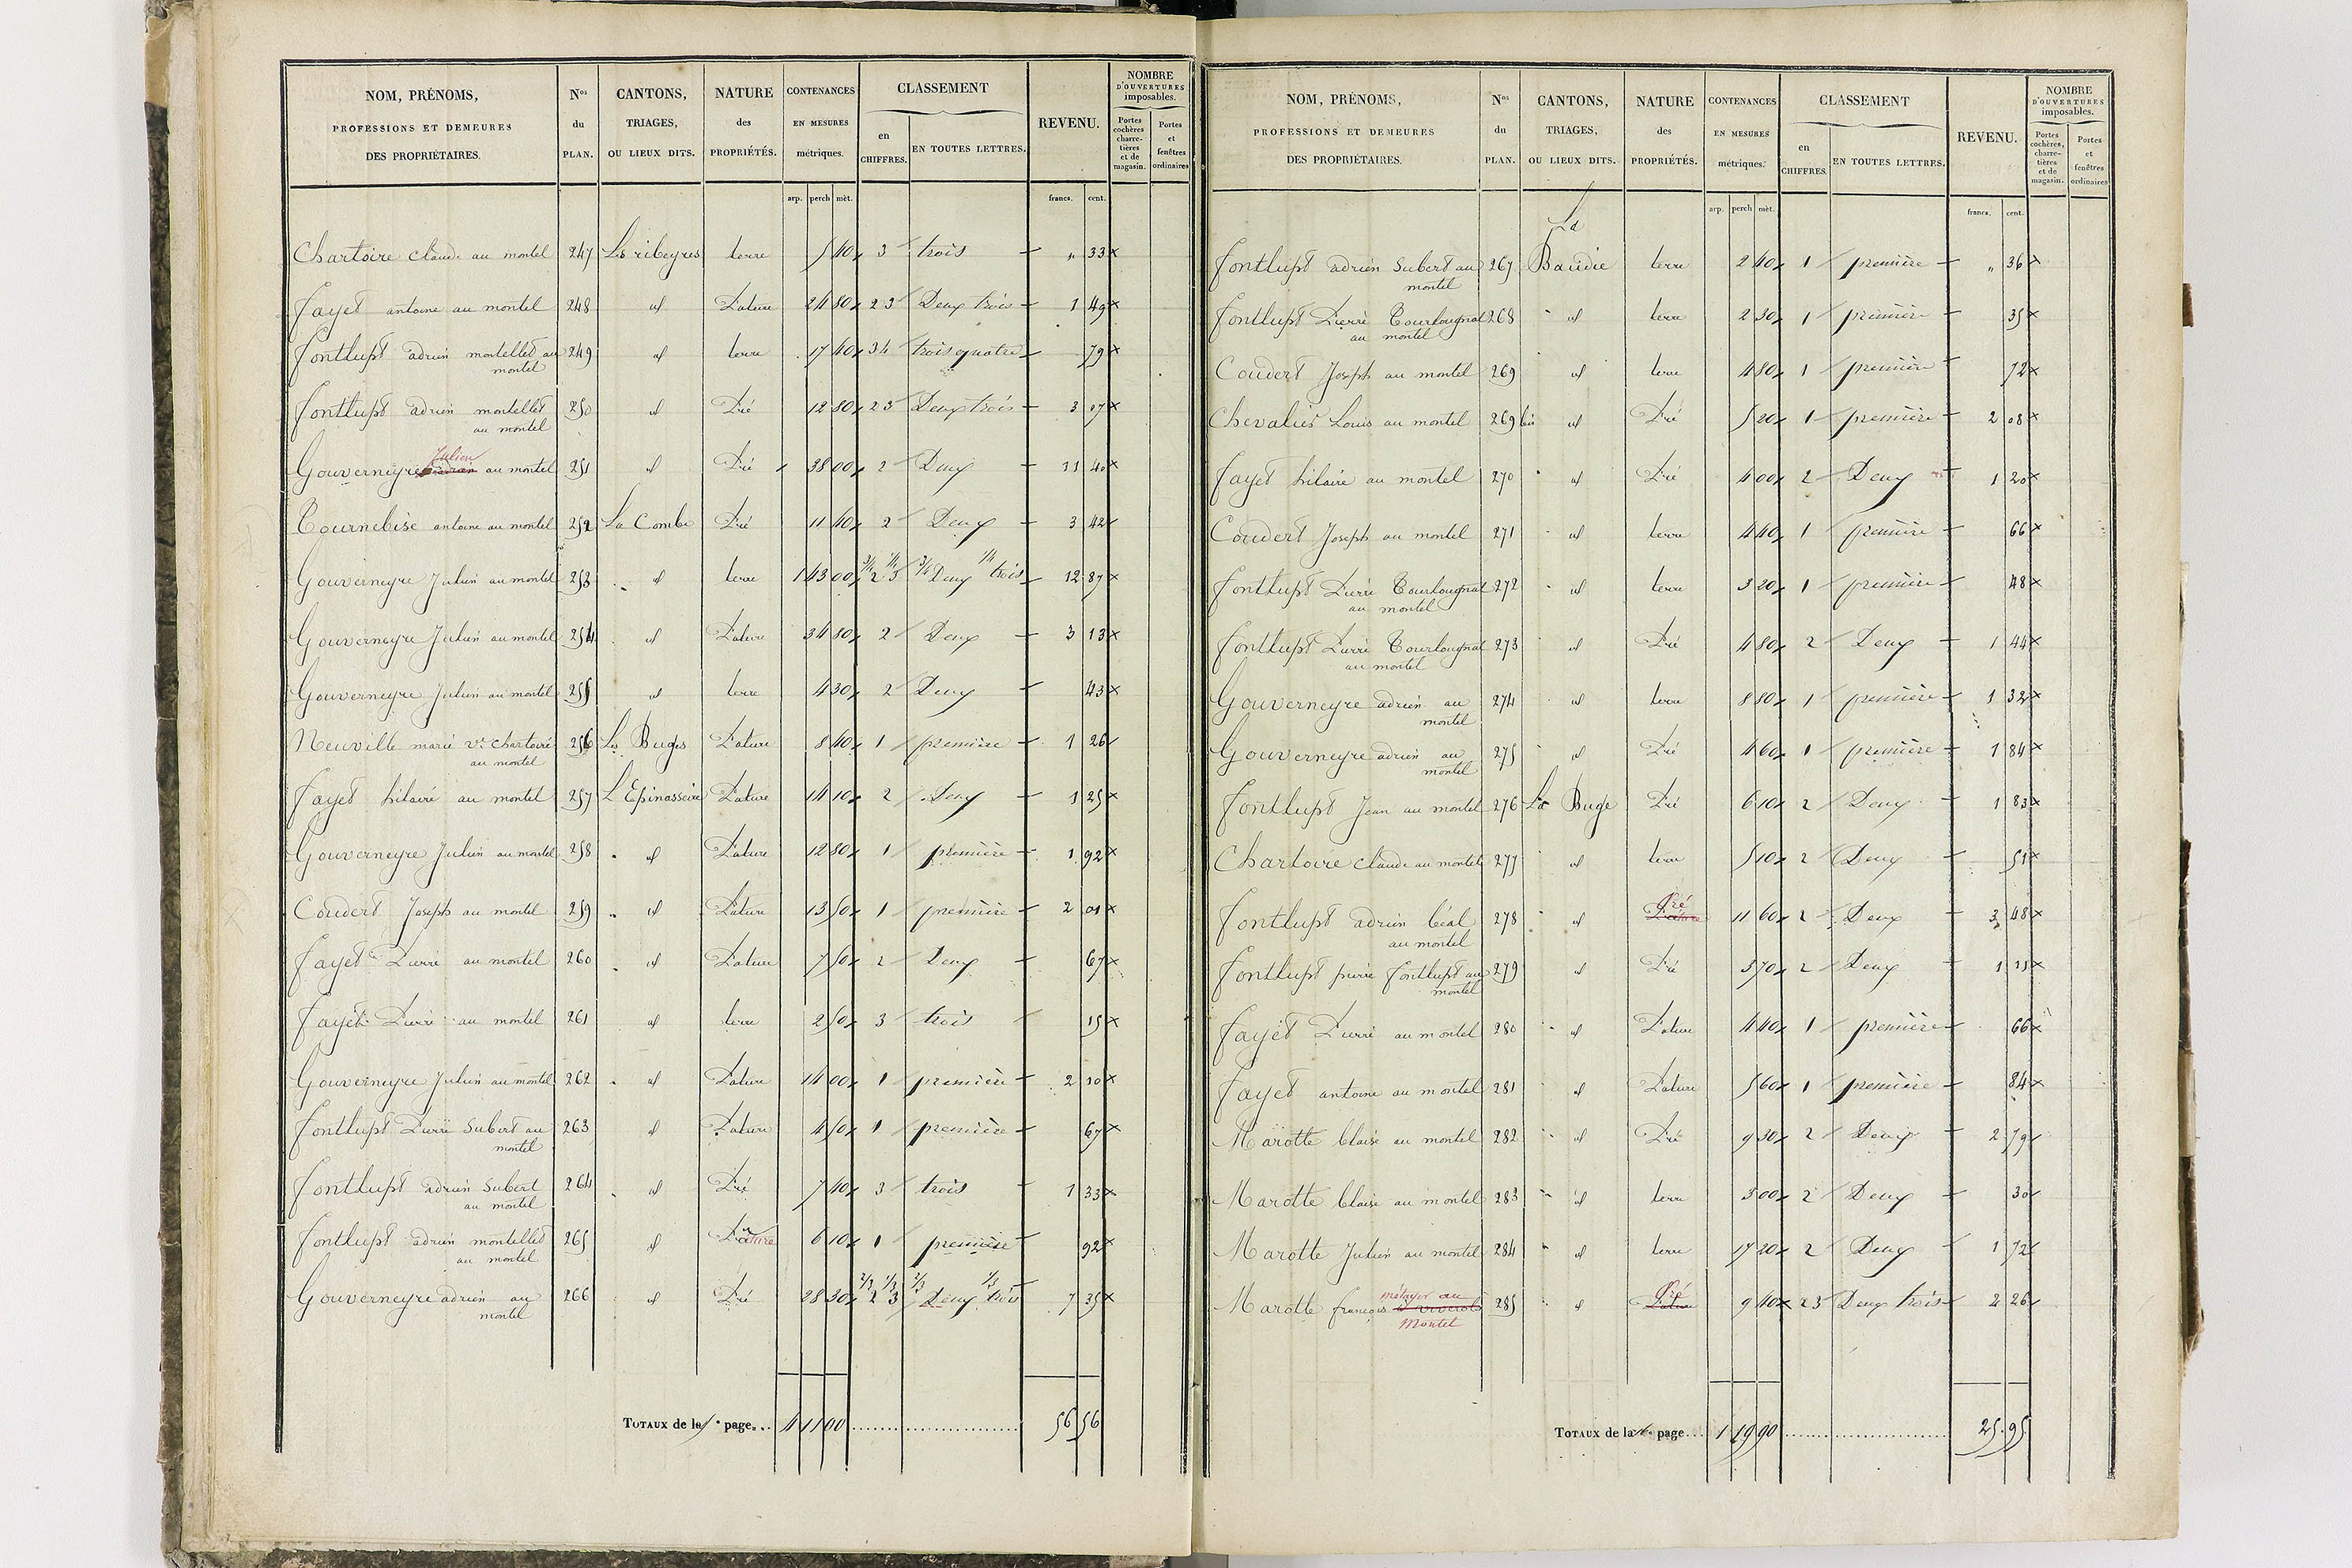 NOM, PRÉNOMS, PROFESSIONS ET DEMEURES DES PROPRIÉTAIRES. Nos du PLAN. CANTONS, TRIAGES, OU LIEUX DITS. NATURE des PROPRIÉTÉS. CONTENANCES EN MESURES métriques. CLASSEMENT en CHIFFRES. EN TOUTES LETTRES. REVENU. NOMBRE D'OUVERTURES imposables. Portes cochères charretières et de magasin. Portes et fenêtres ordinaires
arp. perch mèt. francs. cent.
Chartoire claude au montel 247 Les ribeyres terre 5 40 3 trois " 33
fayet antoine au montel 248 id Pature 24 80 2 3 Deux trois 1 49
fontlupt adrien montellet au montel 249 id terre 17 40 3 4 trois quatre 79
fontlupt adrien montellet au montel 250 id Pré 12 80 2 3 Deux trois 3 07
Gouverneyre Julien au montel 251 id Pré 38 00 2 Deux 11 40
Tournebise antoine au montel 252 La Combe Pré 11 40 2 Deux 3 42
Gouverneyre Julien au montel 253 id terre 1 43 00 3/4 2 1/4 3 3/4 Deux 1/4 trois 12 87
Gouverneyre Julien au montel 254 id Pature 34 80 2 Deux 3 13
Gouverneyre Julien au montel 255 id terre 4 30 2 Deux 43
Neuville marie ve chartoire au montel 256 Les Buges Pature 8 40 1 première 1 26
fayet hilaire au montel 257 L'Epinasseire Pature 14 10 2 Deux 1 25
Gouverneyre Julien au montel 258 id Pature 12 80 1 première 1 92
Coudert Joseph au montel 259 id Pature 13 50 1 première 2 01
fayet Pierre au montel 260 id Pature 7 50 2 Deux 67
fayet Pierre au montel 261 id terre 2 50 3 trois 15
Gouverneyre Julien au montel 262 id Pature 14 00 1 première 2 10
fontlupt Pierre Subert au montel 263 id Pature 4 50 1 première 67
fontlupt adrien Subert au montel 264 id Pré 7 40 3 trois 1 33
fontlupt adrien montellet au montel 265 id Pature 6 10 1 première 92
Gouverneyre adrien au montel 266 id Pré 28 30 2/3 2 1/3 3 2/3 Deux 1/3 trois 7 35
TOTAUX de la page... 4 11 00 56 56
NOM, PRÉNOMS, PROFESSIONS ET DEMEURES DES PROPRIÉTAIRES. Nos du PLAN. CANTONS, TRIAGES, OU LIEUX DITS. NATURE des PROPRIÉTÉS. CONTENANCES EN MESURES métriques. CLASSEMENT en CHIFFRES. EN TOUTES LETTRES. REVENU. NOMBRE D'OUVERTURES imposables. Portes cochères, charretières et de magasin. Portes et fenêtres ordinaires
arp. perch mèt. francs. cent.
fontlupt adrien Subert au montel 267 La Baudie terre 2 40 1 première " 36
fontlupt Pierre Tourlougnat au montel 268 id terre 2 30 1 première 35
Coudert Joseph au montel 269 id terre 4 80 1 première 72
Chevalier Louis au montel 269 bis id Pré 5 20 1 première 2 08
fayet hilaire au montel 270 id Pré 4 00 2 Deux 1 20
Coudert Joseph au montel 271 id terre 4 40 1 première 66
fontlupt Pierre Tourlougnat au montel 272 id terre 3 20 1 première 48
fontlupt Pierre Tourlougnat au montel 273 id Pré 4 80 2 Deux 1 44
Gouverneyre adrien au montel 274 id terre 8 80 1 première 1 32
Gouverneyre adrien au montel 275 id Pré 4 60 1 première 1 84
fontlupt Jean au montel 276 La Buge Pré 6 10 2 Deux 1 83
Chartoire claude au montel 277 id terre 5 10 2 Deux 51
fontlupt adrien béal au montel 278 id Pré Pature 11 60 2 Deux 3 48
fontlupt pierre fontlupt au montel 279 id Pré 3 70 2 Deux 1 11
fayet Pierre au montel 280 id Pature 4 40 1 première 66
fayet antoine au montel 281 id Pature 5 60 1 première 84
Marotte blaise au montel 282 id Pré 9 30 2 Deux 2 79
Marotte blaise au montel 283 id terre 3 00 2 Deux 30
Marotte Julien au montel 284 id terre 17 20 2 Deux 1 72
Marotte françois métayer au Montel 285 id Pré Pature 9 40 2 3 Deux trois 2 26
TOTAUX de la page... 1 19 90 25 95